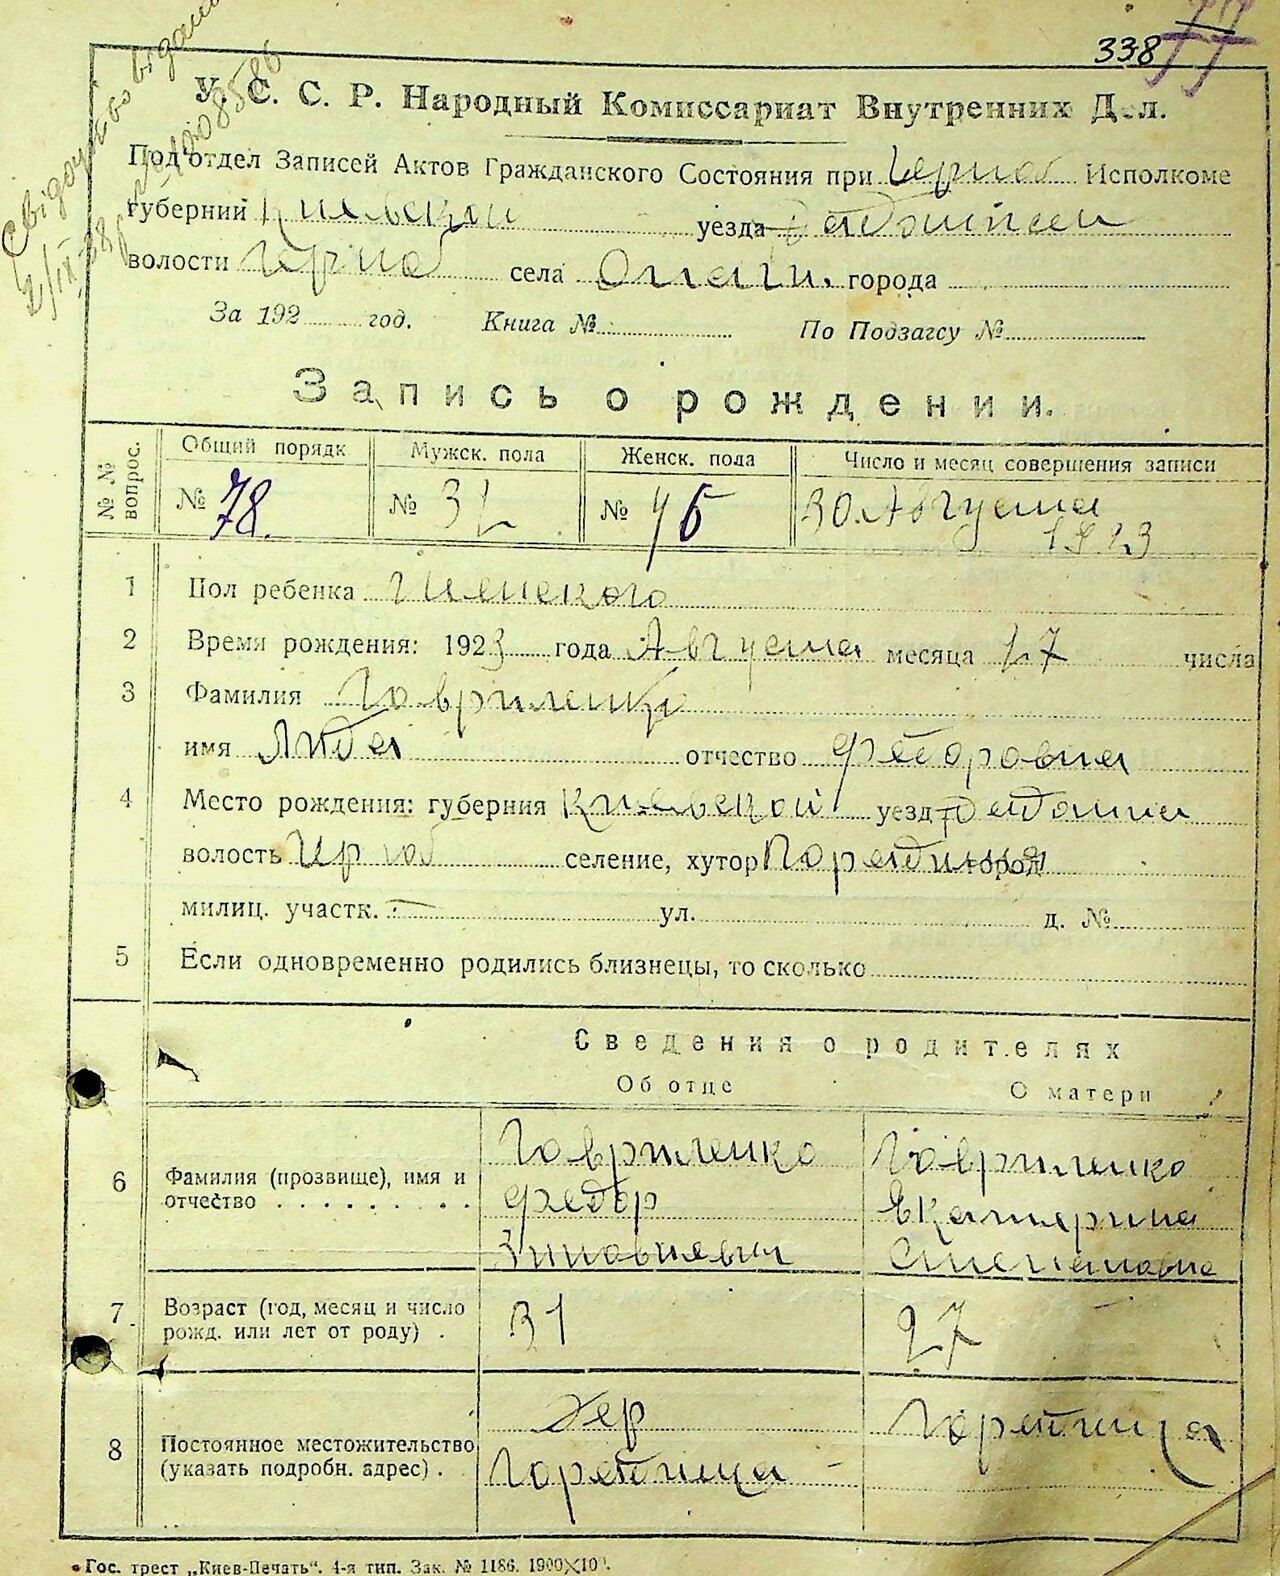 338 77
У. С. С. Р. Народный Комиссариат Внутренних Дел.
Подотдел Записей Актов Гражданского Состояния при Черноб Исполкоме
губернии Киевской уезда
волости Черноб села Опачи, города
За 192 год. Книга № По Подзагсу №
Запись о рождении.
№ № вопрос. Общий порядк Мужск. пола Женск. пола Число и месяц совершения записи
№ 78. № 32 № 46 30. Августа
1923
1 Пол ребенка Женского
2 Время рождения: 1923 года Августа месяца 17 числа
3 Фамилия Гавриленко
имя Лида отчество Федоровна
4 Место рождения: губерния Киевской уезд
волость селение, хутор город
милиц. участк. – ул. д. №
5 Если одновременно родились близнецы, то сколько
Сведения о родителях
Об отце О матери
6 Фамилия (прозвище), имя и отчество . . . . . . . . .
Гавриленко Гавриленко
Федор Екатерина
Степановна
7 Возраст (год, месяц и число рожд. или лет от роду) . 31 27
8 Постоянное местожительство (указать подробн. адрес) .
Гос. трест „Киев-Печать“. 4-я тип. Зак. № 1186.